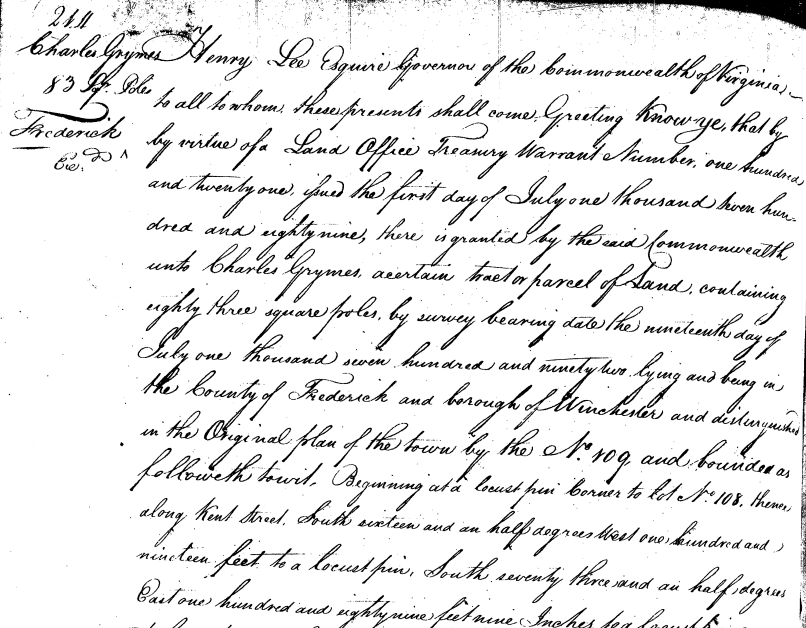 211
Charles Grymes
83 Sqr. Poles
Frederick
Exd.
Henry Lee Esquire Governor of the Commonwealth of Virginia,
to all to whom these presents shall come Greeting Know ye, that by
by virtue of a Land Office Treasury Warrant Number, one hundred
and twenty one, issued the first day of July one thousand seven hun-
dred and eighty nine, there is granted by the said Commonwealth
unto Charles Grymes, a certain tract or parcel of Land, containing
eighty three square poles, by survey bearing date the nineteenth day of
July one thousand seven hundred and ninety two lying and being in
the County of Frederick and borough of Winchester and distinguished
in the Original plan of the town by the No. 109, and bounded as
followeth to wit, Beginning at a locust pin Corner to Lot No. 108. thence
along Kent Street. South sixteen and an half degrees West one hundred and
nineteen feet to a locust pin, South seventy three and an half degrees
East one hundred and eighty nine feet nine Inches to a locust